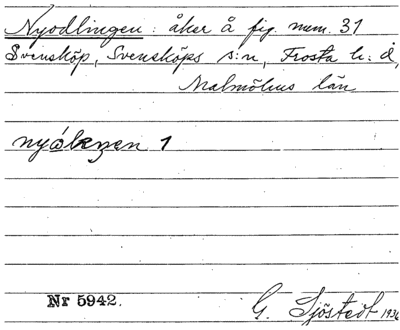 Nyodlingen: åker å fig. num. 31
Svensköp, Svensköps s:n, Frosta h:d,
Malmöhus län
1
Nr 5942.
G. Sjöstedt 1936